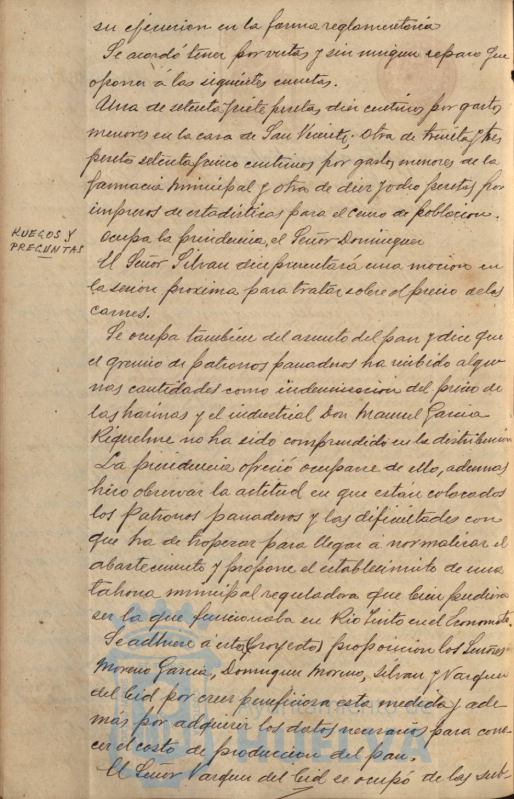 su ejecucion en la forma reglamentaria
Se acordó tener por vistas y sin ningun reparo que
oponer a las siguientes cuentas.
Una de setenta y siete pesetas diez centimos por gastos
menores en la casa de San Vicente; otra de treinta y tres
pesetas setenta y cinco centimos por gastos menores de la
farmacia municipal y otra de diez y ocho pesetas por
impresos de estadisticas para el censo de poblacion.
RUEGOS Y
PREGUNTAS
Ocupa la presidencia, el Señor Dominguez
El Señor Silvan dice presentará una mocion en
la sesion proxima para tratar sobre el precio de las
carnes.
Se ocupa tambien del asunto del pan y dice que
el gremio de patronos panaderos ha recibido algu-
nas cantidades como indemnizacion del precio de
las harinas y el industrial Don Manuel Garcia
Riquelme no ha sido comprendido en la distribucion
La presidencia ofreció ocuparse de ello, ademas
hizo observar la actitud en que están colocados
los patronos panaderos y las dificultades con
que ha de tropezar para llegar á normalizar el
abastecimiento y propone el establecimiento de una
tahona municipal reguladora que bien pudiera
ser la que funcionaba en Rio Tinto en el Economato.
Se adhieren á esta (proyecto) proposicion los Señores
Moreno Garcia, Dominguez Moreno, Silvan y Vazquez
del Cid por creer beneficiosa esta medida y ade-
más por adquirir los datos necesarios para cono-
cer el costo de produccion del pan.
El Señor Vazquez del Cid se ocupó de las sub-
HUELVA